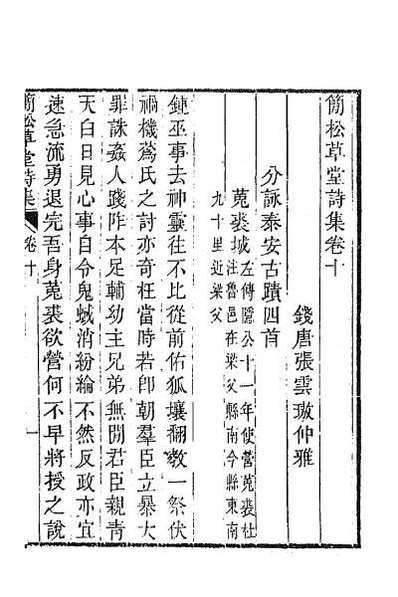 簡松草堂詩集卷十
錢唐張雲璈仲雅
分詠泰安古蹟四首
菟裘城左傳隱公十一年使營菟裘杜
注魯邑在梁父縣南今縣東南
九十里近梁父
鍾巫事去神靈往不比從前佑狐壤翻教一祭伏
禍機蔿氏之討亦奇枉當時若即朝羣臣立暴大
罪誅姦人踐阼本足輔幼主兄弟無閒君臣親青
天白日見心事自令鬼蜮消紛綸不然反政亦宜
速急流勇退完吾身菟裘欲營何不早將授之說
簡松草堂詩集
卷十
一